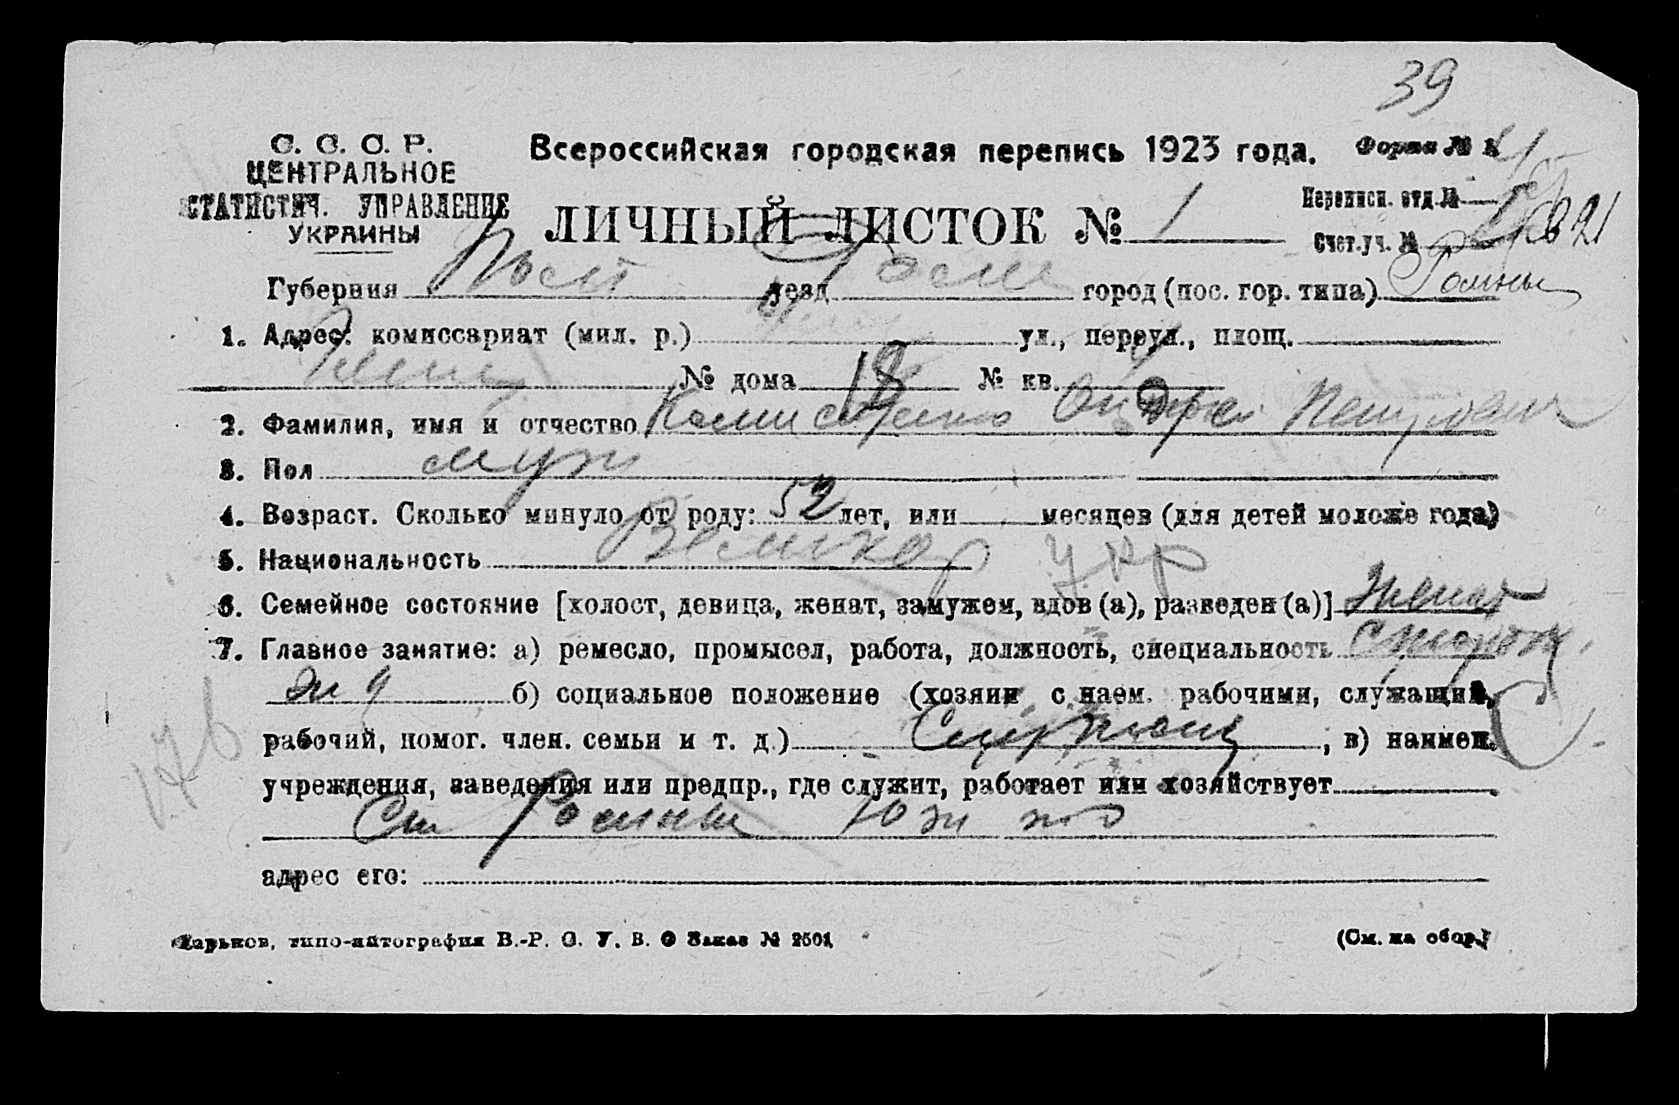 39
С. С. С. Р.
ЦЕНТРАЛЬНОЕ
СТАТИСТИЧ. УПРАВЛЕНИЕ
УКРАИНЫ
Всероссийская городская перепись 1923 года.
Форма №
Переписн. отд. №
ЛИЧНЫЙ ЛИСТОК № 1
Счет. уч. № 21
Губерния Полт уезд Ромн город (пос. гор. типа) Ромны
1. Адрес: комиссариат (мил. р.) ул., переул., площ.
№ дома 18 № кв.
2. Фамилия, имя и отчество Андрей
3. Пол муж
4. Возраст. Сколько минуло от роду: 52 лет, или месяцев (для детей моложе года)
5. Национальность Великор укр
6. Семейное состояние [холост, девица, женат, замужем, вдов (а), разведен (а)] Женат
7. Главное занятие: а) ремесло, промысел, работа, должность, специальность Сторож
жд б) социальное положение (хозяин с наем. рабочими, служащий,
рабочий, помог. член. семьи и т. д.) Служащ ; в) наимен.
учреждения, заведения или предпр., где служит, работает или хозяйствует
Ст Ромны Юж жд
адрес его:
Харьков, типо-автография В.-Р. С. У. В. О Заказ № 2501
(См. на обор.)